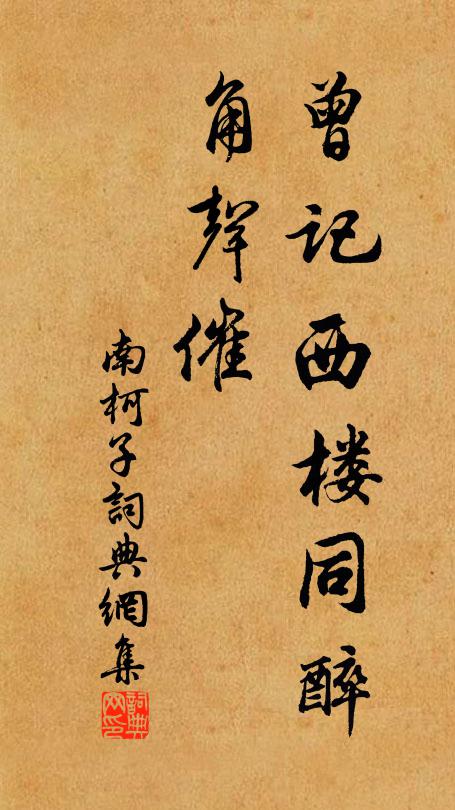 曾记西楼同醉
角聲催
南柯子詞典網集
詞典
网印